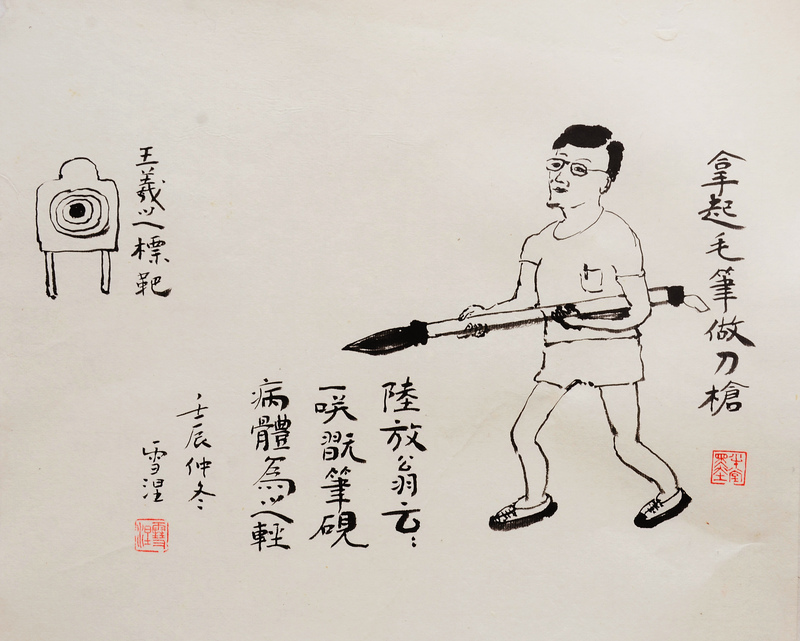 拿起毛筆做刀槍
陸放翁云：
一咲翫筆硯
病體為之輕
壬辰仲冬
雪涅
雪涅
王羲之標靶